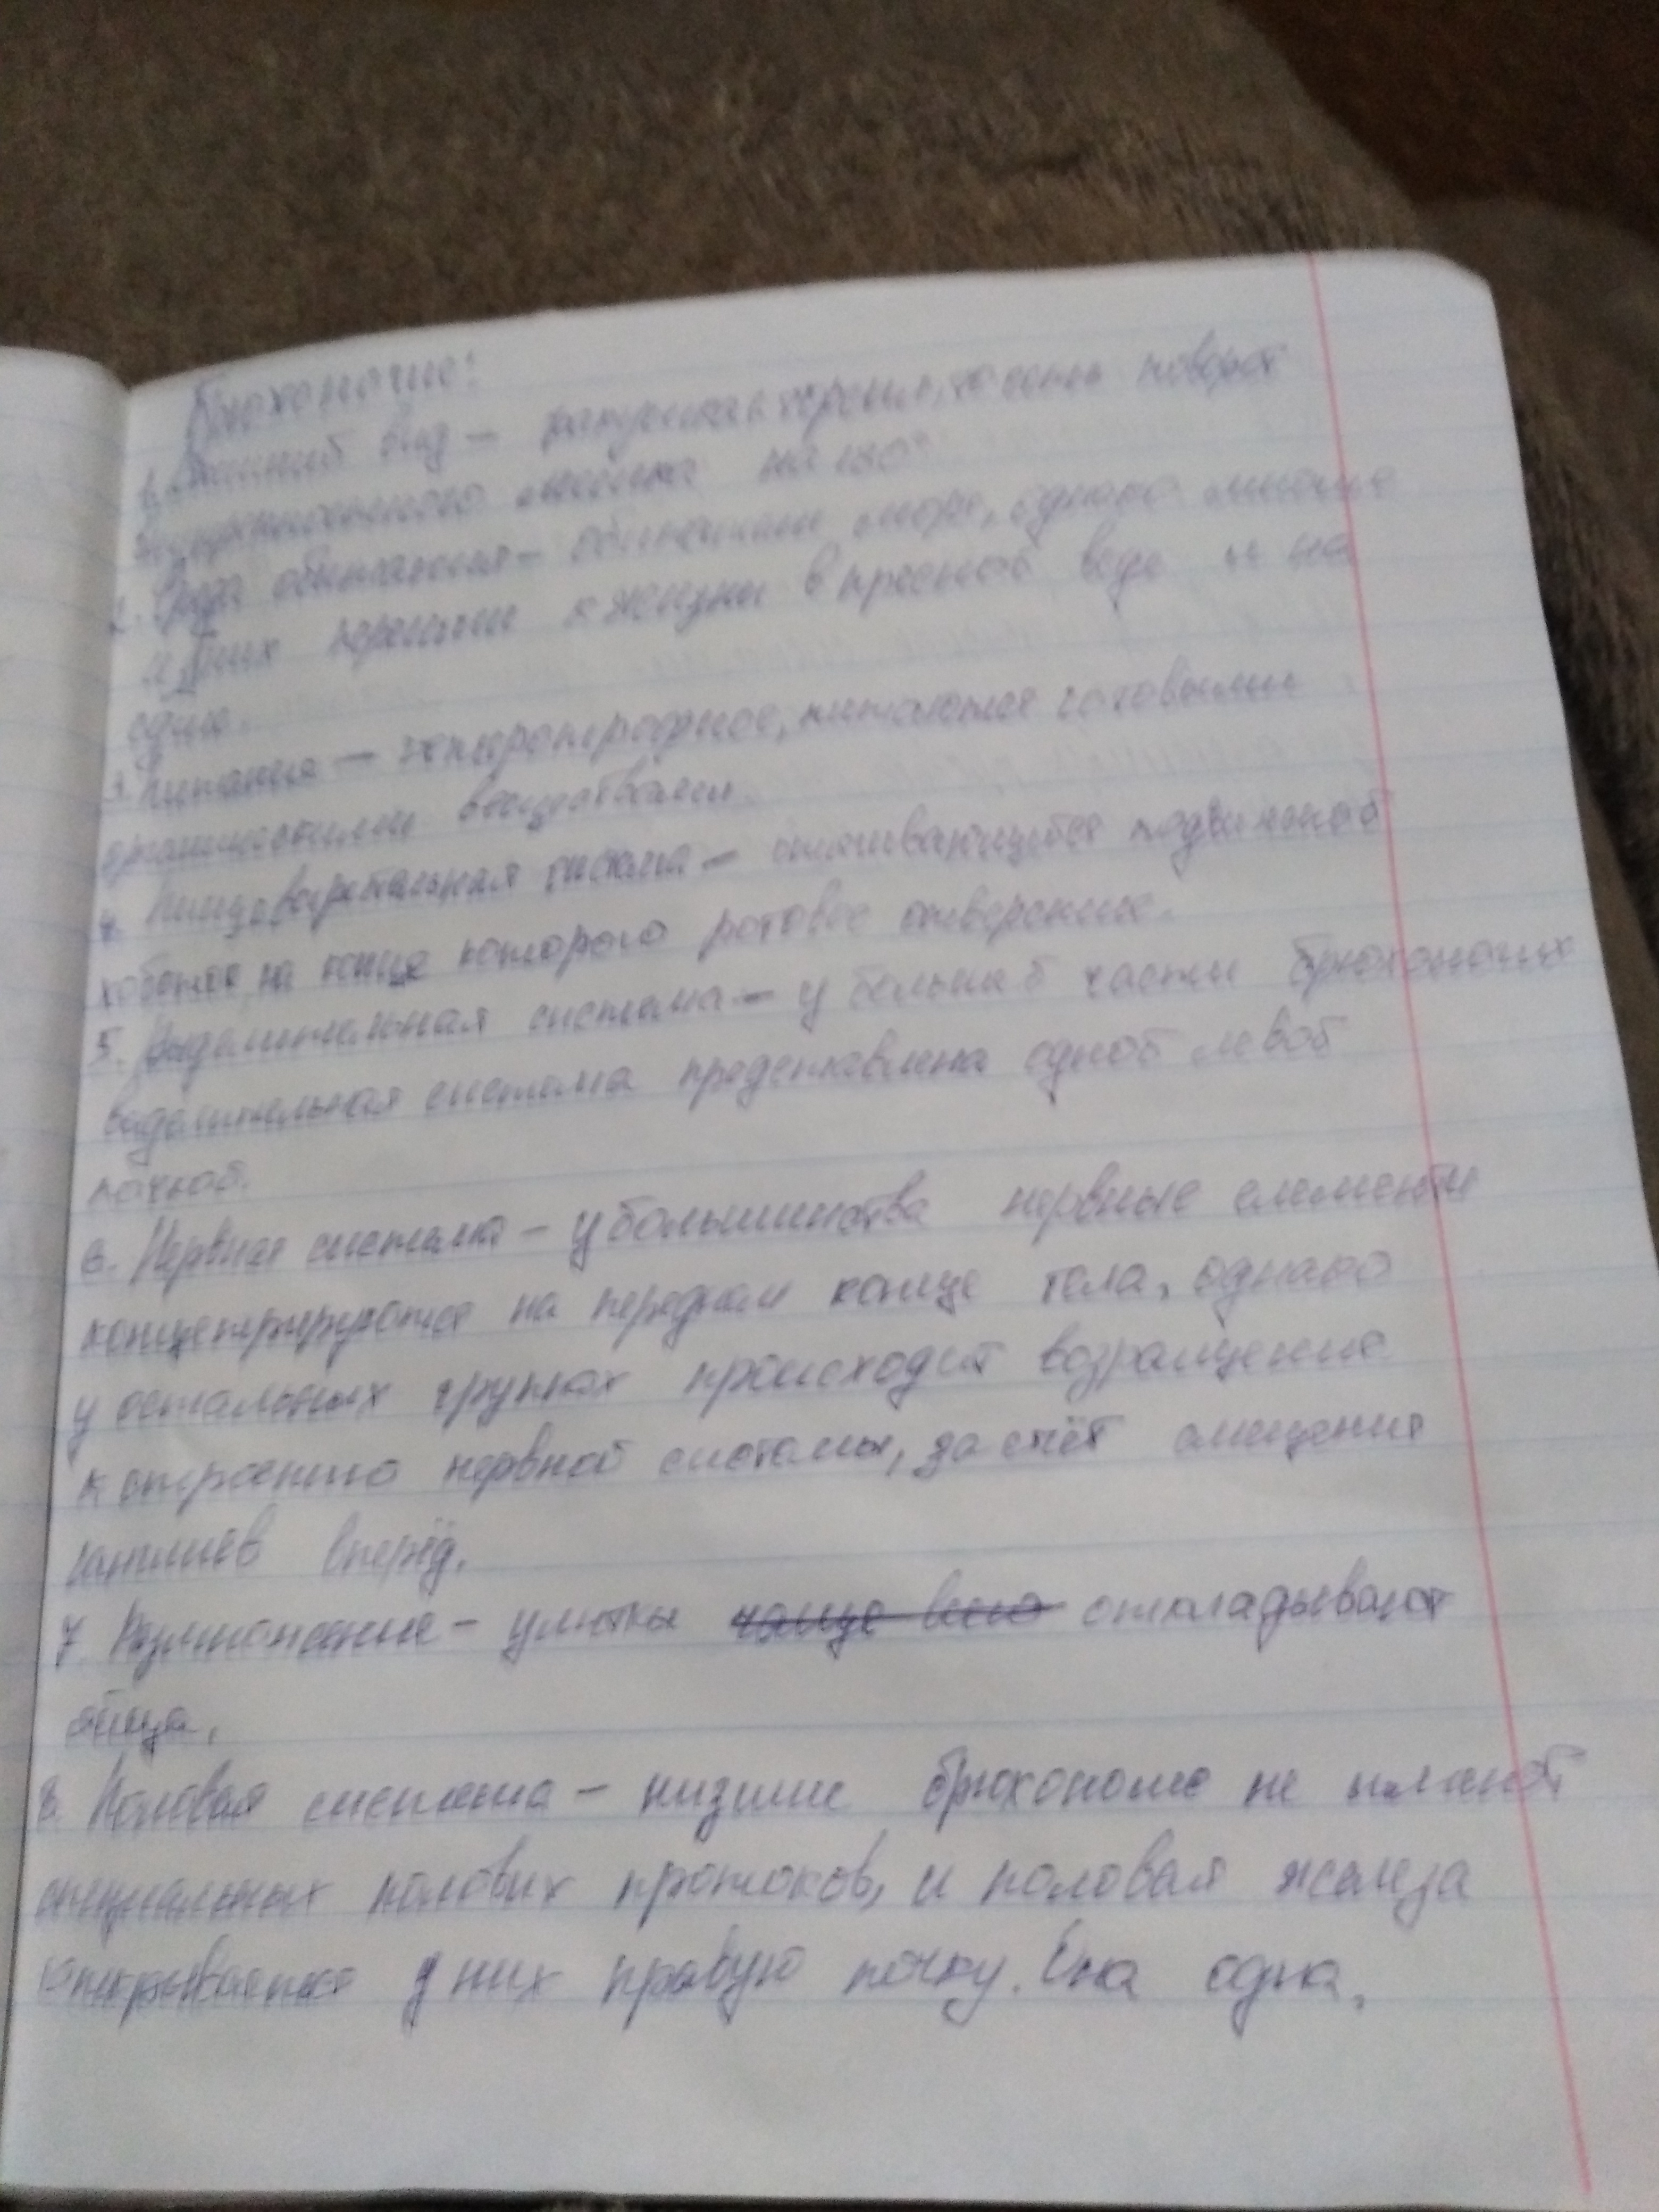 Брюхоногие:
1. Внешний вид – торсия, то есть поворот
внутренностного мешка на 180°
2. Среда обитания – обитатели море, однако многие
из них перешли к жизни в пресной воде и на
суше.
3. Питания – гетеротрофное, питаются готовыми
органическими веществами.
4. Пищеварительная система – подвижной
хоботок на конце которого ротовое отверстие.
5. Выделительная система – у большей части брюхоногих
выделительная система представлена одной левой
почкой.
6. Нервная система – у большинства нервные елементы
концентрируются на переднем конце тела, однако
у остальных группах происходит возращение
к строению нервной системы, за счёт смещения
ганглиев вперёд.
7. Размножение – улитки чаще всего откладывают
яйца.
8. Половая система – низшие брюхоногие не имеют
специальных половых протоков, и половая железа
открывается у них правую почку. Она одна.